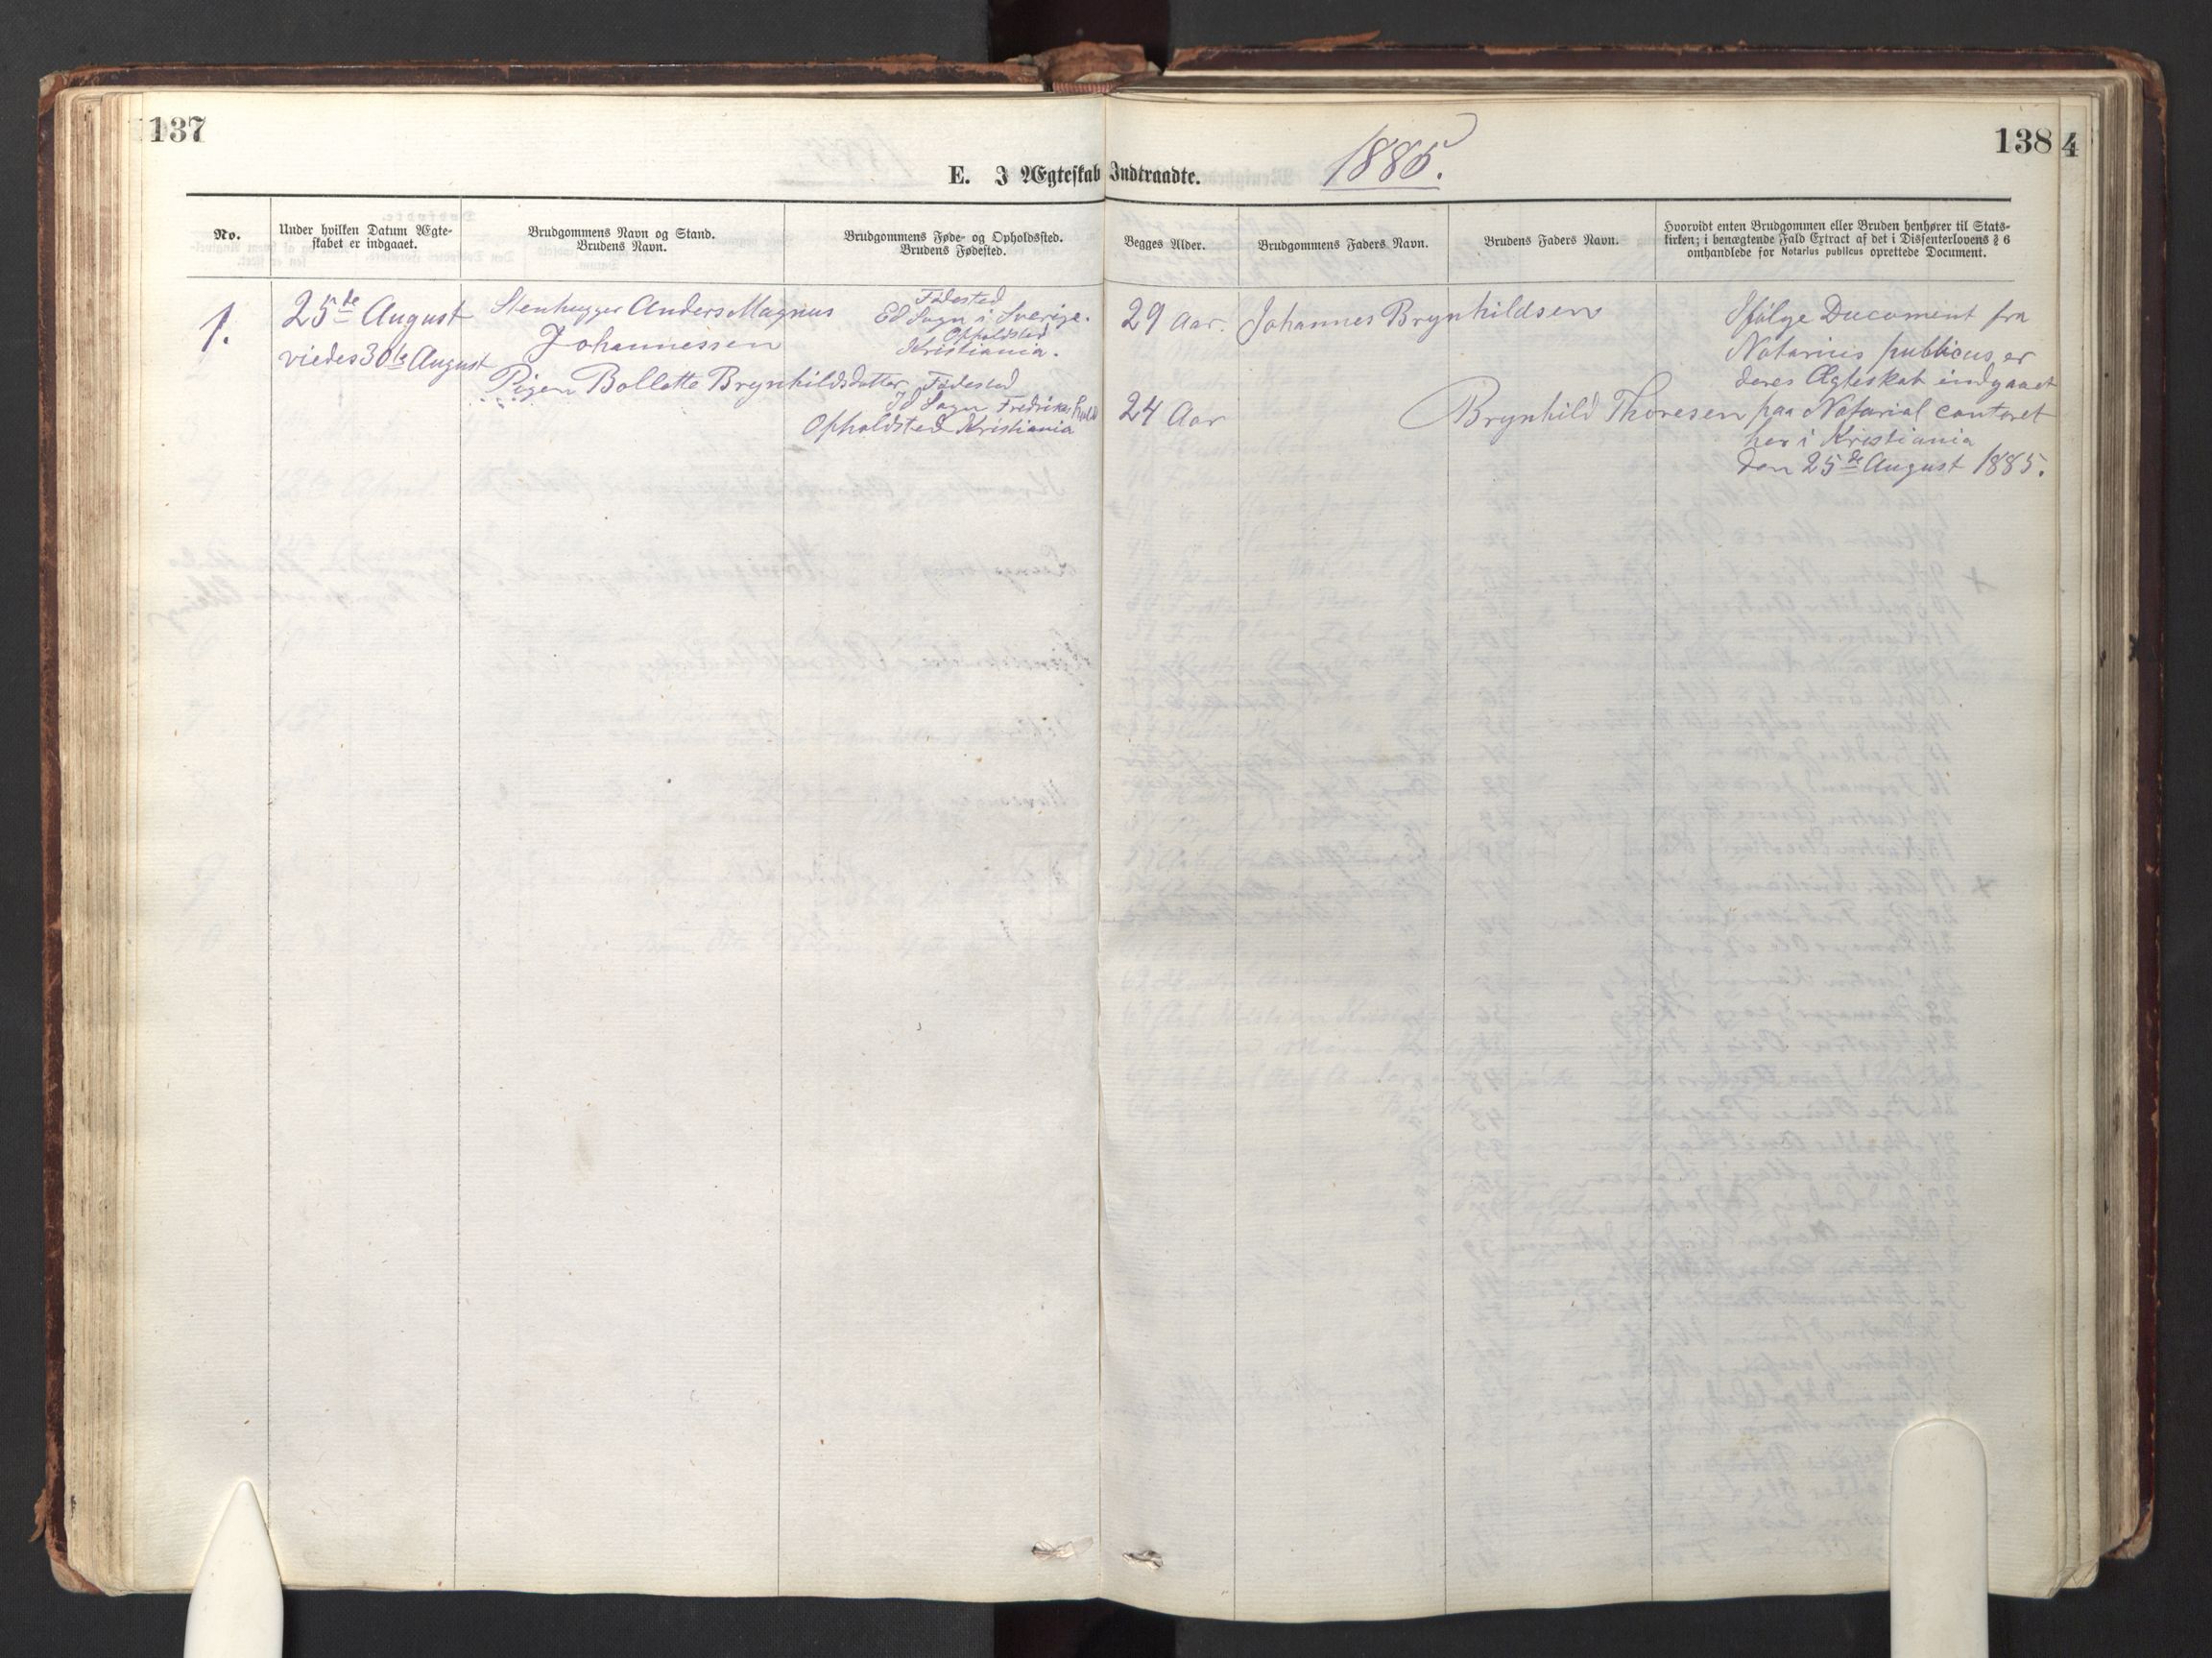 137
138
4
E. I Ægteskab Indtraadte.
1885.
No.
Under hvilken Datum Ægte-
skabet er indgaaet.
Brudgommens Navn og Stand.
Brudens Navn.
Brudgommens Føde- og Opholdssted.
Brudens Fødested.
Begges Alder.
Brudgommens Faders Navn.
Brudens Faders Navn.
Hvorvidt enten Brudgommen eller Bruden henhører til Stats-
kirken; i benægtende Fald Extract af det i Dissenterlovens § 6
omhandlede for Notarius publicus oprettede Document.
1.
25de August
viedes 30te August
Stenhugger Anders Magnus
Johannessen
Pigen Bollette Brynhildsdatter
Fødested
Ed Sogn i Sverige.
Opholdsted
Kristiania.
Fødested
Id Sogn Fredrikshald
Opholdsted Kristiania
29 Aar.
24 Aar
Johannes Brynhildsen
Brynhild Thoresen
Ifølge Document fra
Notarius publicus er
deres Ægteskab indgaaet
paa Notarial contoret
her i Kristiania
den 25de August 1885.